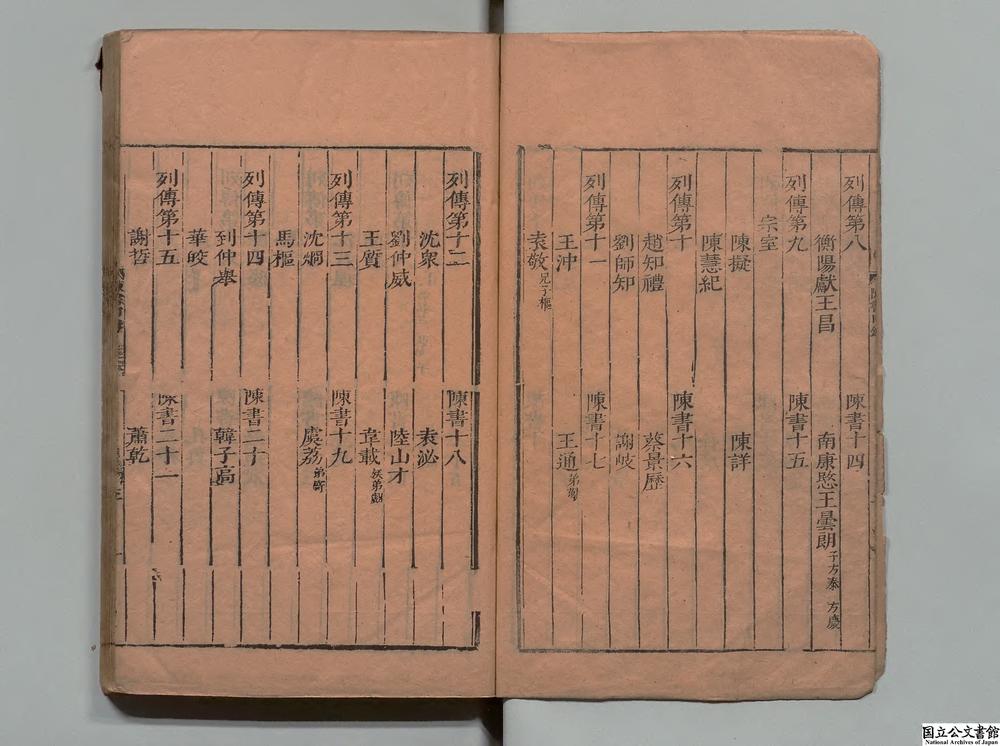 列傳第八 陳書十四
衡陽獻王昌 南康愍王曇朗子方泰 方慶
列傳第九 陳書十五
宗室
陳擬 陳詳
陳慧紀
列傳第十 陳書十六
趙知禮 蔡景歷
劉師知 謝岐
列傳第十一 陳書十七
王沖 王通弟勱
袁敬兄子樞
列傳第十二 陳書十八
沈衆 袁泌
劉仲威 陸山才
王質 韋載族弟翽
列傳第十三 陳書十九
沈烱 虞荔弟寄
馬樞
列傳第十四 陳書二十
到仲舉 韓子高
華皎
列傳第十五 陳書二十一
謝哲 蕭乾
国立公文書館
National Archives of Japan